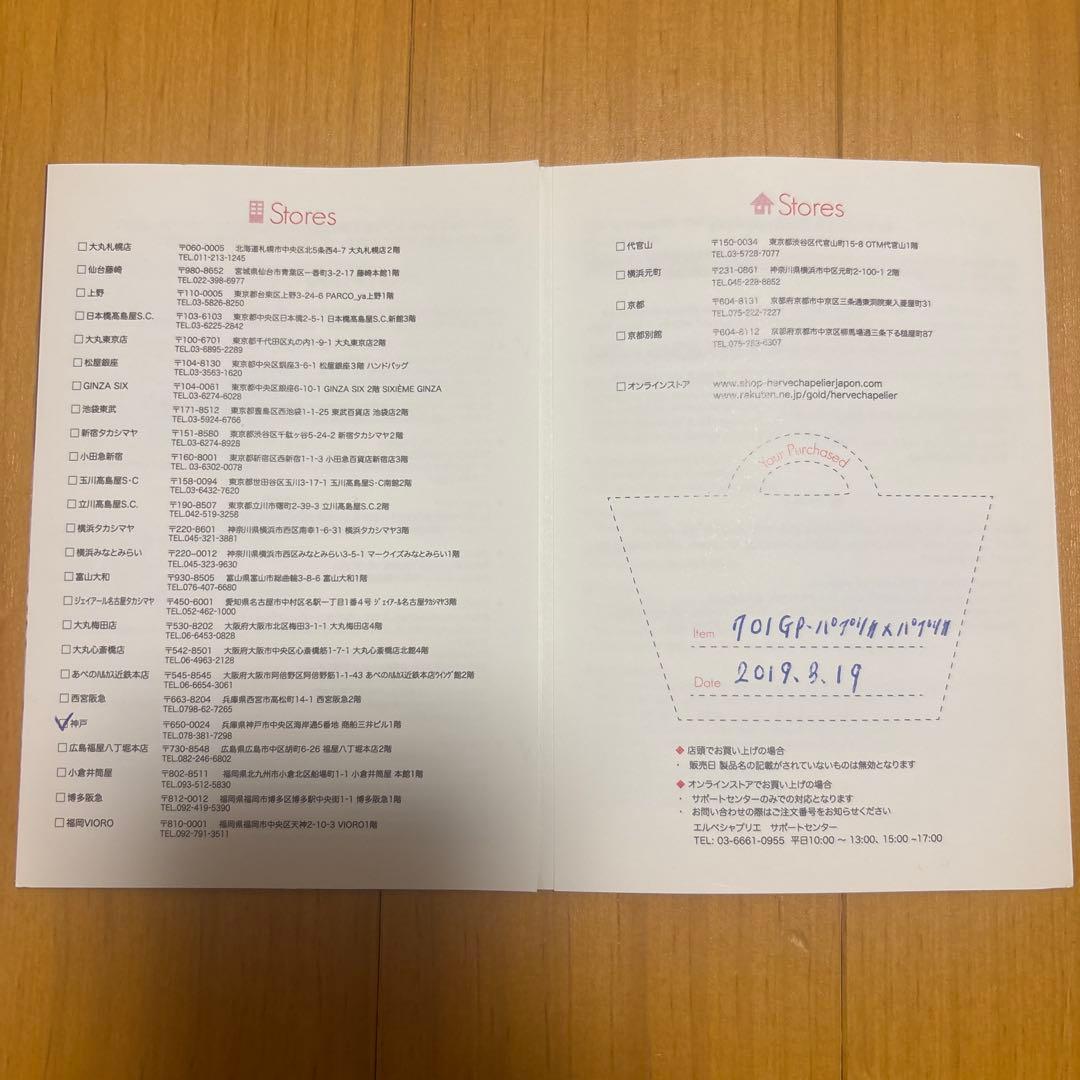 Stores
大丸札幌店 〒060-0005 北海道札幌市中央区北5条西4-7 大丸札幌店2階
TEL.011-213-1245
仙台藤崎 〒980-8652 宮城県仙台市青葉区一番町3-2-17 藤崎本館1階
TEL.022-398-6977
上野 〒110-0005 東京都台東区上野3-24-6 PARCO_ya上野1階
TEL.03-5826-8250
日本橋髙島屋S.C. 〒103-6103 東京都中央区日本橋2-5-1 日本橋髙島屋S.C.新館3階
TEL.03-6225-2842
大丸東京店 〒100-6701 東京都千代田区丸の内1-9-1 大丸東京店2階
TEL.03-6895-2289
松屋銀座 〒104-8130 東京都中央区銀座3-6-1 松屋銀座3階 ハンドバッグ
TEL.03-3563-1620
GINZA SIX 〒104-0061 東京都中央区銀座6-10-1 GINZA SIX 2階 SIXIÈME GINZA
TEL.03-6274-6028
池袋東武 〒171-8512 東京都豊島区西池袋1-1-25 東武百貨店 池袋店2階
TEL.03-5924-6766
新宿タカシマヤ 〒151-8580 東京都渋谷区千駄ヶ谷5-24-2 新宿タカシマヤ2階
TEL.03-6274-8928
小田急新宿 〒160-8001 東京都新宿区西新宿1-1-3 小田急百貨店新宿店3階
TEL. 03-6302-0078
玉川髙島屋S・C 〒158-0094 東京都世田谷区玉川3-17-1 玉川髙島屋S・C南館2階
TEL.03-6432-7620
立川髙島屋S.C. 〒190-8507 東京都立川市曙町2-39-3 立川髙島屋S.C.2階
TEL.042-519-3258
横浜タカシマヤ 〒220-8601 神奈川県横浜市西区南幸1-6-31 横浜タカシマヤ3階
TEL.045-321-3881
横浜みなとみらい 〒220-0012 神奈川県横浜市西区みなとみらい3-5-1 マークイズみなとみらい1階
TEL.045-323-9630
富山大和 〒930-8505 富山県富山市総曲輪3-8-6 富山大和1階
TEL.076-407-6680
ジェイアール名古屋タカシマヤ 〒450-6001 愛知県名古屋市中村区名駅一丁目1番4号 ジェイアール名古屋タカシマヤ3階
TEL.052-462-1000
大丸梅田店 〒530-8202 大阪府大阪市北区梅田3-1-1 大丸梅田店4階
TEL.06-6453-0828
大丸心斎橋店 〒542-8501 大阪府大阪市中央区心斎橋筋1-7-1 大丸心斎橋店北館4階
TEL.06-4963-2128
あべのハルカス近鉄本店 〒545-8545 大阪府大阪市阿倍野区阿倍野筋1-1-43 あべのハルカス近鉄本店ウイング館2階
TEL.06-6654-3061
西宮阪急 〒663-8204 兵庫県西宮市高松町14-1 西宮阪急2階
TEL.0798-62-7265
神戸 〒650-0024 兵庫県神戸市中央区海岸通5番地 商船三井ビル1階
TEL.078-381-7298
広島福屋八丁堀本店 〒730-8548 広島県広島市中区胡町6-26 福屋八丁堀本店2階
TEL.082-246-6802
小倉井筒屋 〒802-8511 福岡県北九州市小倉北区船場町1-1 小倉井筒屋 本館1階
TEL.093-512-5830
博多阪急 〒812-0012 福岡県福岡市博多区博多駅中央街1-1 博多阪急1階
TEL.092-419-5390
福岡VIORO 〒810-0001 福岡県福岡市中央区天神2-10-3 VIORO1階
TEL.092-791-3511
Stores
代官山 〒150-0034 東京都渋谷区代官山町15-8 OTM代官山1階
TEL.03-5728-7077
横浜元町 〒231-0861 神奈川県横浜市中区元町2-100-1 2階
TEL.045-228-8852
京都 〒604-8131 京都府京都市中京区三条通東洞院東入菱屋町31
TEL.075-222-7227
京都別館 〒604-8112 京都府京都市中京区柳馬場通三条下る槌屋町87
TEL.075-253-6307
オンラインストア www.shop-hervechapelierjapon.com
www.rakuten.ne.jp/gold/hervechapelier
Your Purchased
Item 701GP-パプリカ×パプリカ
Date 2019.3.19
◆ 店頭でお買い上げの場合
・ 販売日 製品名の記載がされていないものは無効となります
◆ オンラインストアでお買い上げの場合
・ サポートセンターのみでの対応となります
・ お問い合わせの際はご注文番号をお知らせください
エルベシャプリエ サポートセンター
TEL: 03-6661-0955 平日10:00 ～ 13:00、15:00 ~17:00